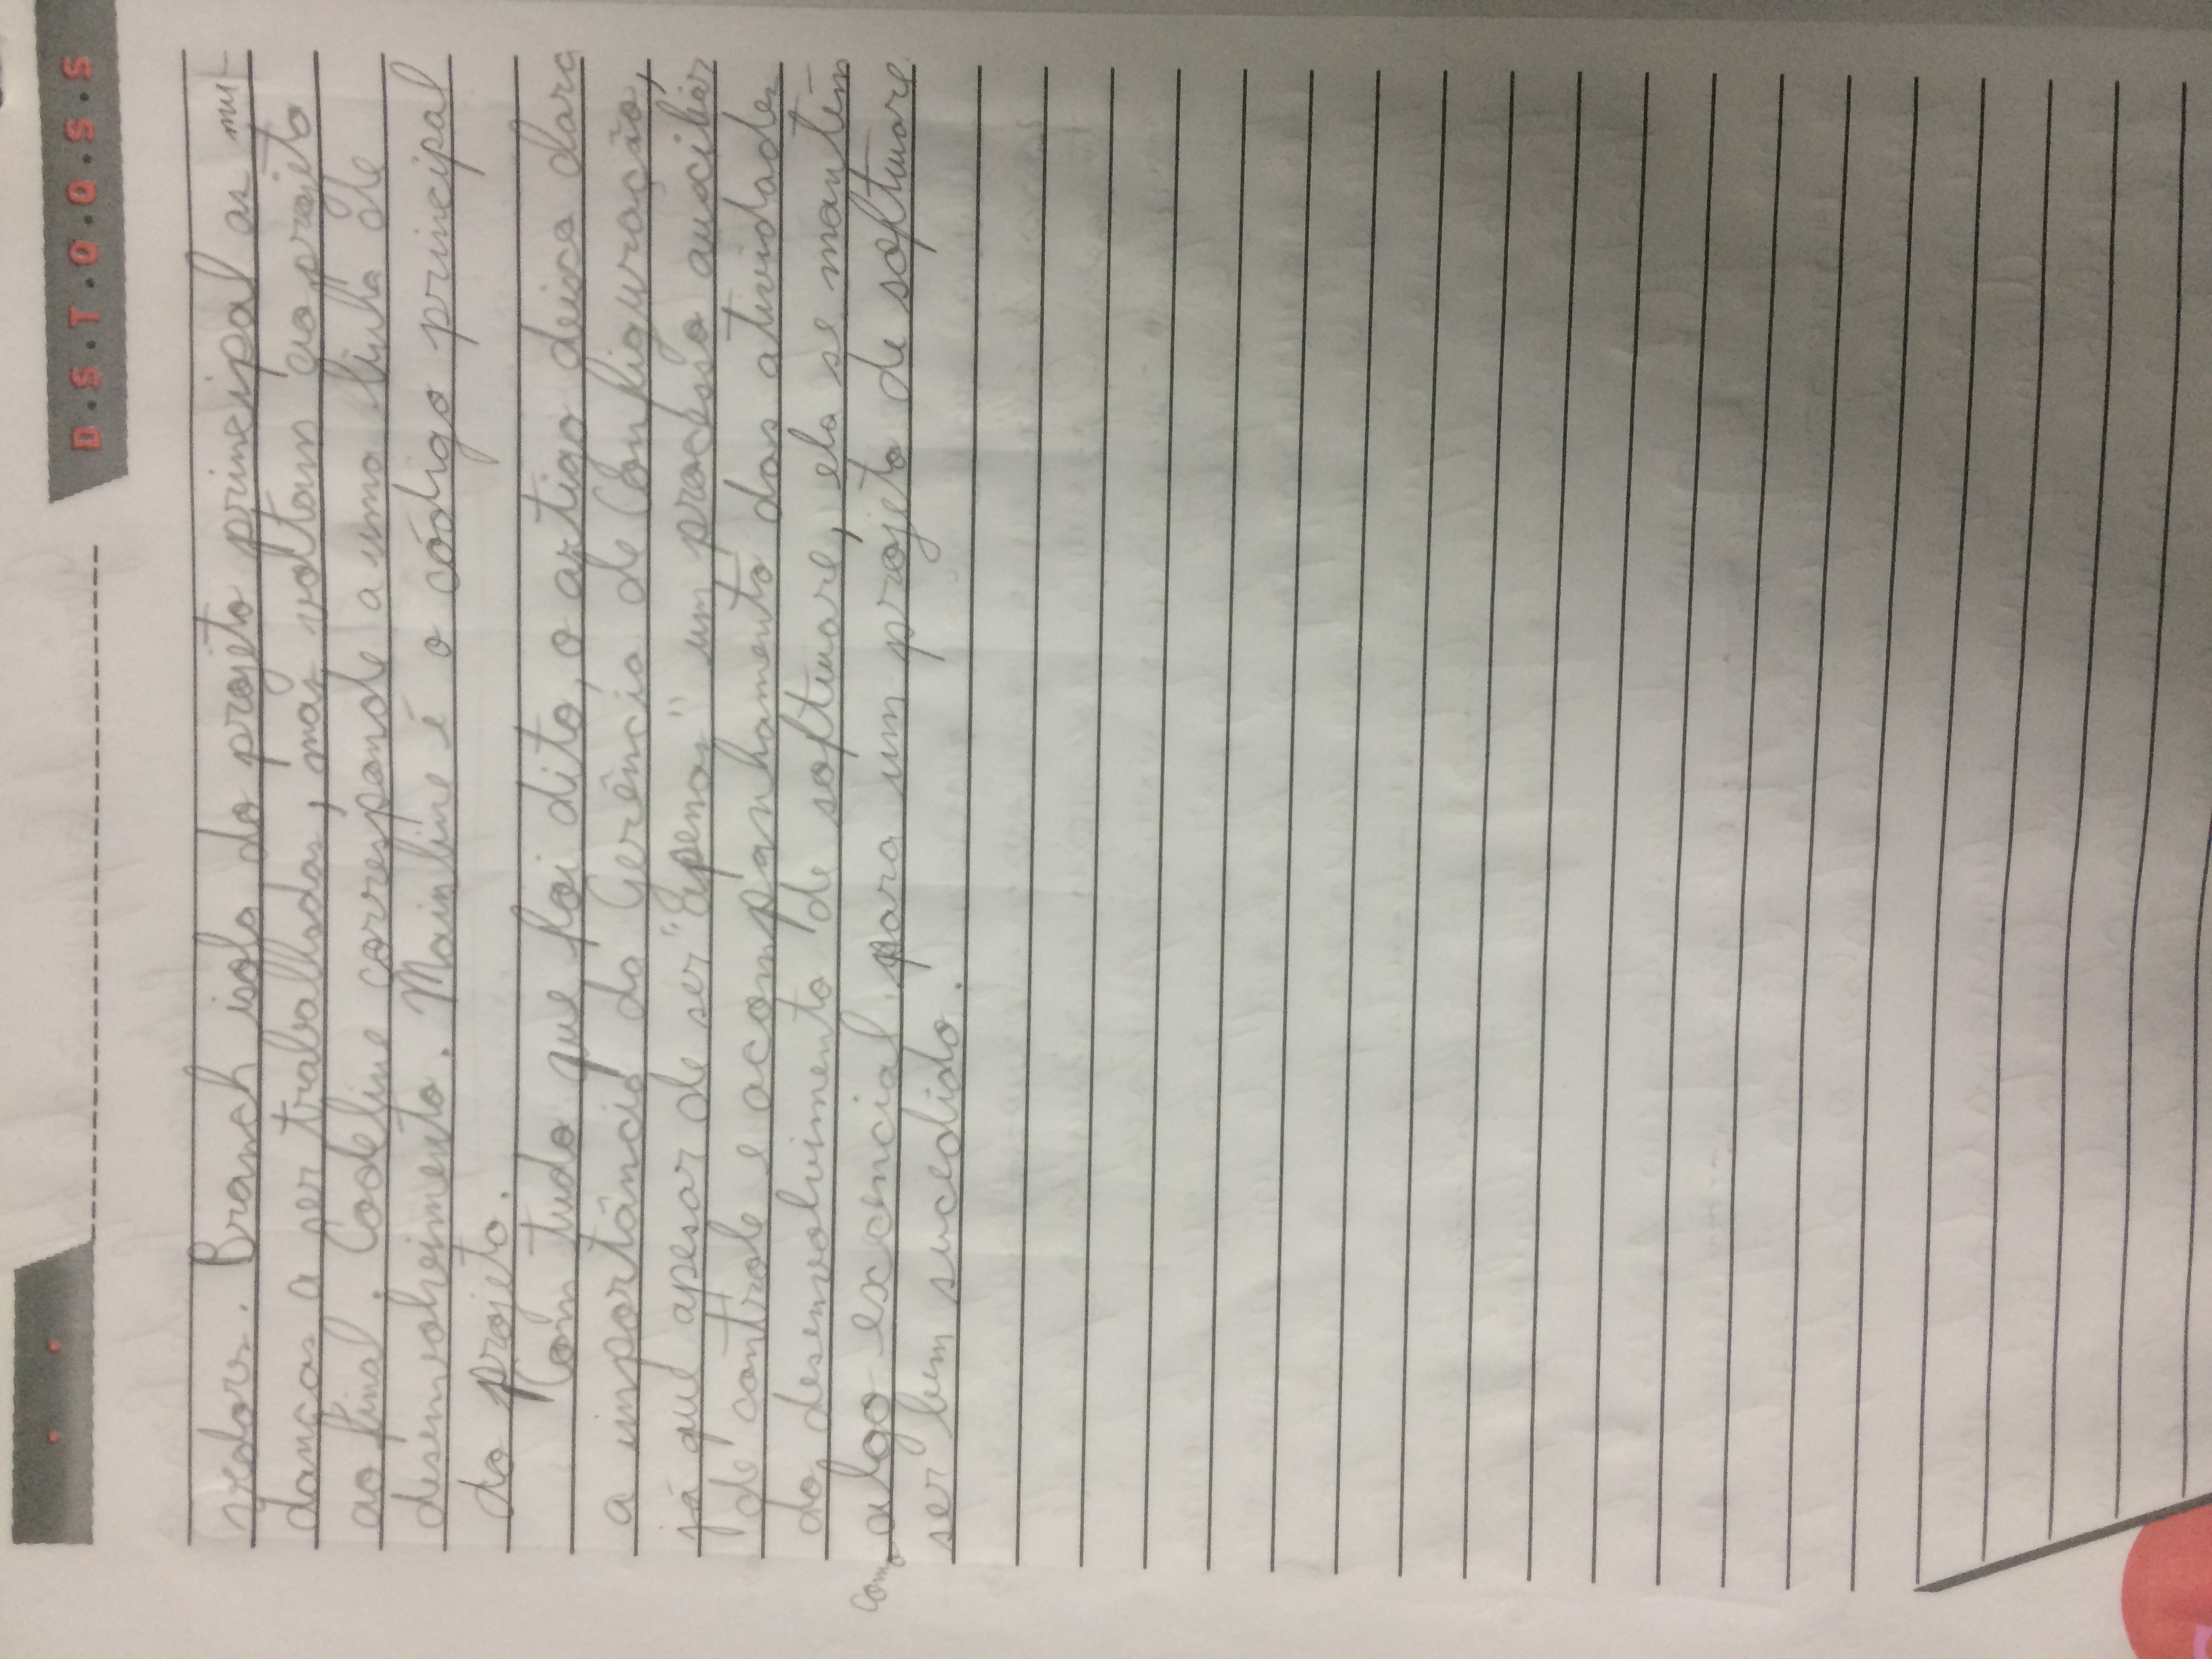 D.S.T.Q.Q.S.S
vedores. Branch isola do projeto principal as mu-
danças a ser trabalhadas, mas voltam ao projeto
ao final. Codeline corresponde a uma linha de
desenvolvimento. Mainline é o código principal
do projeto.
Com tudo que foi dito, o artigo deixa clara
a importância da Gerência de Configuração,
já que apesar de ser "apenas" um processo auxiliar
de controle e acompanhamento das atividades
do desenvolvimento de software, ela se mantém
como algo excencial para um projeto de software
ser bem sucedido.